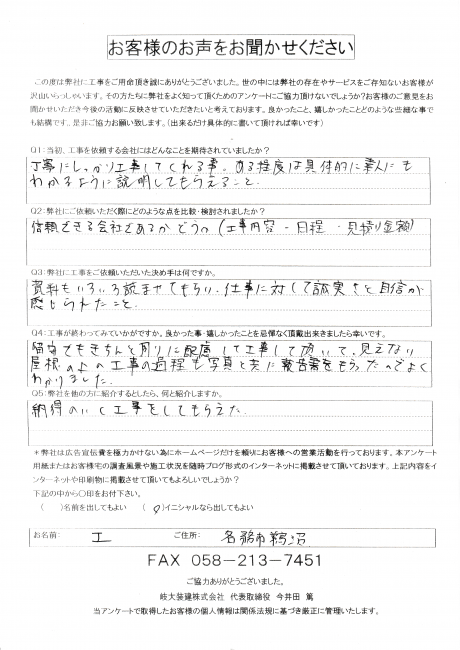 お客様のお声をお聞かせください
この度は弊社に工事をご用命頂き誠にありがとうございました。世の中には弊社の存在やサービスをご存知ないお客様が
沢山いらっしゃいます。その方たちに弊社をよく知って頂くためのアンケートにご協力頂けないでしょうか?お客様のご意見をお
聞かせいただき今後の活動に反映させていただきたいと考えております。良かったこと、嬉しかったことどのような些細な事で
も結構です。是非ご協力お願い致します。(出来るだけ具体的に書いて頂ければ幸いです)
Q1:当初、工事を依頼する会社にはどんなことを期待されていましたか?
丁寧にしっかり工事してくれる事。ある程度は具体的に素人にも
わかるように説明してもらえること.
Q2:弊社にご依頼いただく際にどのような点を比較・検討されましたか?
信頼できる会社であるかどうか(工事内容・日程・見積り金額)
Q3:弊社に工事をご依頼いただいた決め手は何ですか。
資料もいろいろ読ませてもらい、仕事に対して誠実さと自信が
感じられたこと.
Q4:工事が終わってみていかがですか。良かった事・嬉しかったことを忌憚なく頂戴出来きましたら幸いです。
留守でもきちんと周りに配慮して工事して頂いて、見えない
屋根の上の工事の過程も写真と共に報告書をもらったのでよく
わかりました.
Q5:弊社を他の方に紹介するとしたら、何と紹介しますか。
納得のいく工事をしてもらえた.
*弊社は広告宣伝費を極力かけない為にホームページだけを頼りにお客様への営業活動を行っております。本アンケート
用紙またはお客様宅の調査風景や施工状況を随時ブログ形式のインターネットに掲載させて頂いております。上記内容をイ
ンターネットや印刷物に掲載させて頂いてもよろしいでしょうか?
下記の中から〇印をお付下さい。
( )名前を出してもよい (〇)イニシャルなら出してもよい
お名前: エ ご住所: 各務原市鵜沼
FAX 058-213-7451
ご協力ありがとうございました。
岐大装建株式会社 代表取締役 今井田 篤
当アンケートで取得したお客様の個人情報は関係法規に基づき厳正に管理いたします。